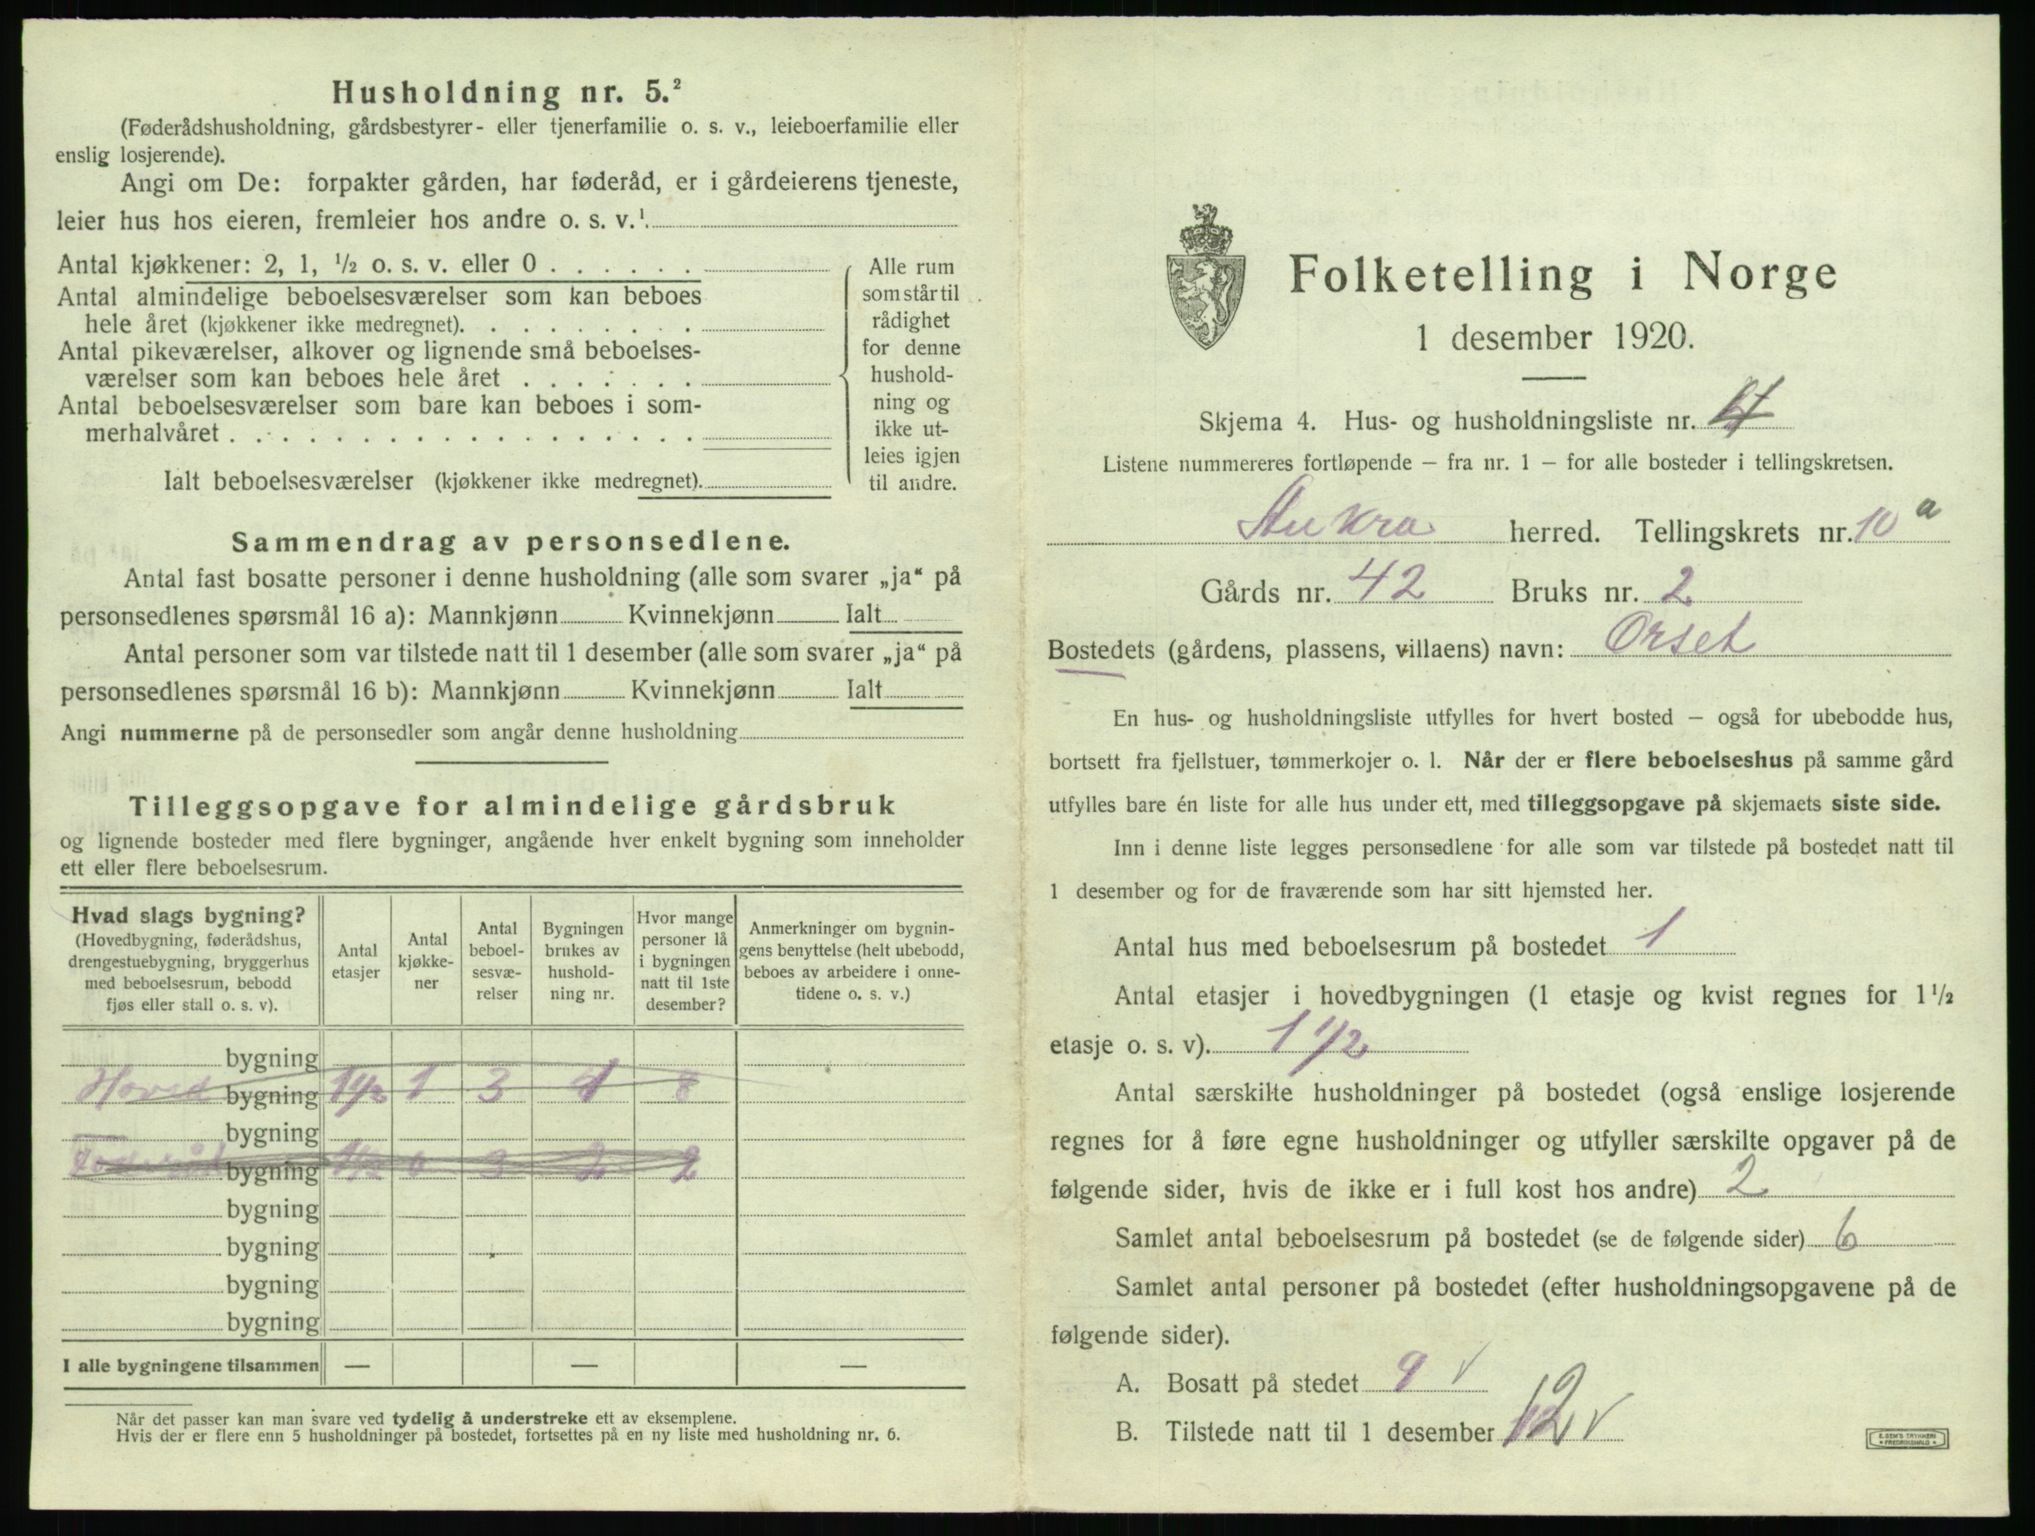 Husholdning nr. 5.²
(Føderådshusholdning, gårdsbestyrer- eller tjenerfamilie o. s. v., leieboerfamilie eller
enslig losjerende).
Angi om De: forpakter gården, har føderåd, er i gårdeierens tjeneste,
leier hus hos eieren, fremleier hos andre o. s. v.¹
Antal kjøkkener: 2, 1, ½ o. s. v. eller 0
Antal almindelige beboelsesværelser som kan beboes
hele året (kjøkkener ikke medregnet).
Antal pikeværelser, alkover og lignende små beboelses-
værelser som kan beboes hele året
Antal beboelsesværelser som bare kan beboes i som-
merhalvåret
Ialt beboelsesværelser (kjøkkener ikke medregnet).
Alle rum
som står til
rådighet
for denne
hushold-
ning og
ikke ut-
leies igjen
til andre.
Sammendrag av personsedlene.
Antal fast bosatte personer i denne husholdning (alle som svarer „ja“ på
personsedlenes spørsmål 16 a): Mannkjønn Kvinnekjønn Ialt
Antal personer som var tilstede natt til 1 desember (alle som svarer „ja“ på
personsedlenes spørsmål 16 b): Mannkjønn Kvinnekjønn Ialt
Angi nummerne på de personsedler som angår denne husholdning
Tilleggsopgave for almindelige gårdsbruk
og lignende bosteder med flere bygninger, angående hver enkelt bygning som inneholder
ett eller flere beboelsesrum.
Hvad slags bygning?
(Hovedbygning, føderådshus,
drengestuebygning, bryggerhus
med beboelsesrum, bebodd
fjøs eller stall o. s. v).
Antal
etasjer
Antal
kjøkke-
ner
Antal
beboel-
sesvæ-
relser
Bygningen
brukes av
hushold-
ning nr.
Hvor mange
personer lå
i bygningen
natt til 1ste
desember?
Anmerkninger om bygnin-
gens benyttelse (helt ubebodd,
beboes av arbeidere i onne-
tidene o. s. v.)
bygning
Hoved bygning 1½ 1 3 1 8
bygning
Føderåd bygning 1½ 0 3 2 2
bygning
bygning
bygning
bygning
I alle bygningene tilsammen — — —
Når det passer kan man svare ved tydelig å understreke ett av eksemplene.
Hvis der er flere enn 5 husholdninger på bostedet, fortsettes på en ny liste med husholdning nr. 6.
Folketelling i Norge
1 desember 1920.
Skjema 4. Hus- og husholdningsliste nr. 4
Listene nummereres fortløpende – fra nr. 1 – for alle bosteder i tellingskretsen.
Aukra herred. Tellingskrets nr. 10 a
Gårds nr. 42 Bruks nr. 2
Bostedets (gårdens, plassens, villaens) navn: Orset
En hus- og husholdningsliste utfylles for hvert bosted – også for ubebodde hus,
bortsett fra fjellstuer, tømmerkojer o. l. Når der er flere beboelseshus på samme gård
utfylles bare én liste for alle hus under ett, med tilleggsopgave på skjemaets siste side.
Inn i denne liste legges personsedlene for alle som var tilstede på bostedet natt til
1 desember og for de fraværende som har sitt hjemsted her.
Antal hus med beboelsesrum på bostedet 1
Antal etasjer i hovedbygningen (1 etasje og kvist regnes for 1½
etasje o. s. v). 1 1/2
Antal særskilte husholdninger på bostedet (også enslige losjerende
regnes for å føre egne husholdninger og utfyller særskilte opgaver på de
følgende sider, hvis de ikke er i full kost hos andre) 2
Samlet antal beboelsesrum på bostedet (se de følgende sider) 6
Samlet antal personer på bostedet (efter husholdningsopgavene på de
følgende sider).
A. Bosatt på stedet 9 v
B. Tilstede natt til 1 desember 12 v
E. SEM'S TRYKKERI
FREDRIKSHALD